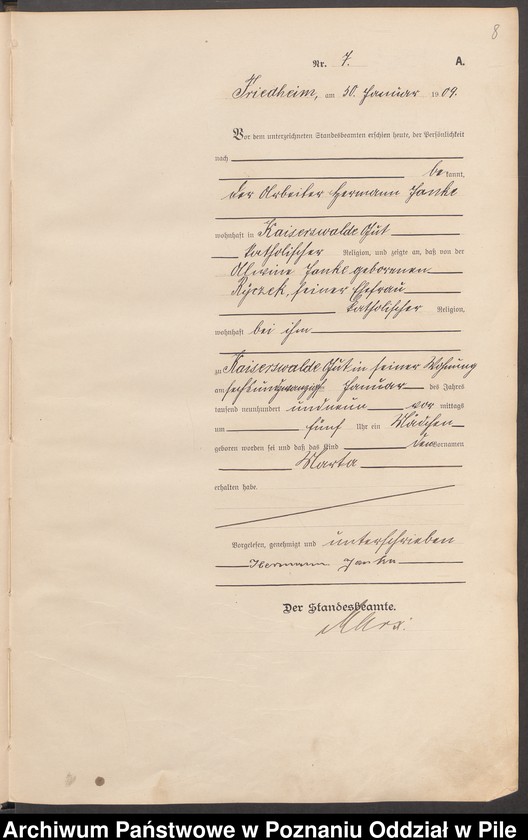 8
Nr. 7. A.
Friedheim, am 30. Januar 1909.
Vor dem unterzeichneten Standesbeamten erschien heute, der Persönlichkeit
nach
bekannt,
der Arbeiter Hermann Janke
wohnhaft in Kaiserswalde Gut
katholischer Religion, und zeigte an, daß von der
Alwine Janke geborenen
Ryczek, seiner Ehefrau
katholischer Religion,
wohnhaft bei ihm
zu Kaiserswalde Gut in seiner Wohnung
am sechsundzwanzigst Januar des Jahres
tausend neunhundert undneun vor mittags
um fünf Uhr ein Mädchen
geboren worden sei und daß das Kind den Vornamen
Marta
erhalten habe.
Vorgelesen, genehmigt und unterschrieben
Hermann Janke
Der Standesbeamte.
Marx.
Archiwum Państwowe w Poznaniu Oddział w Pile